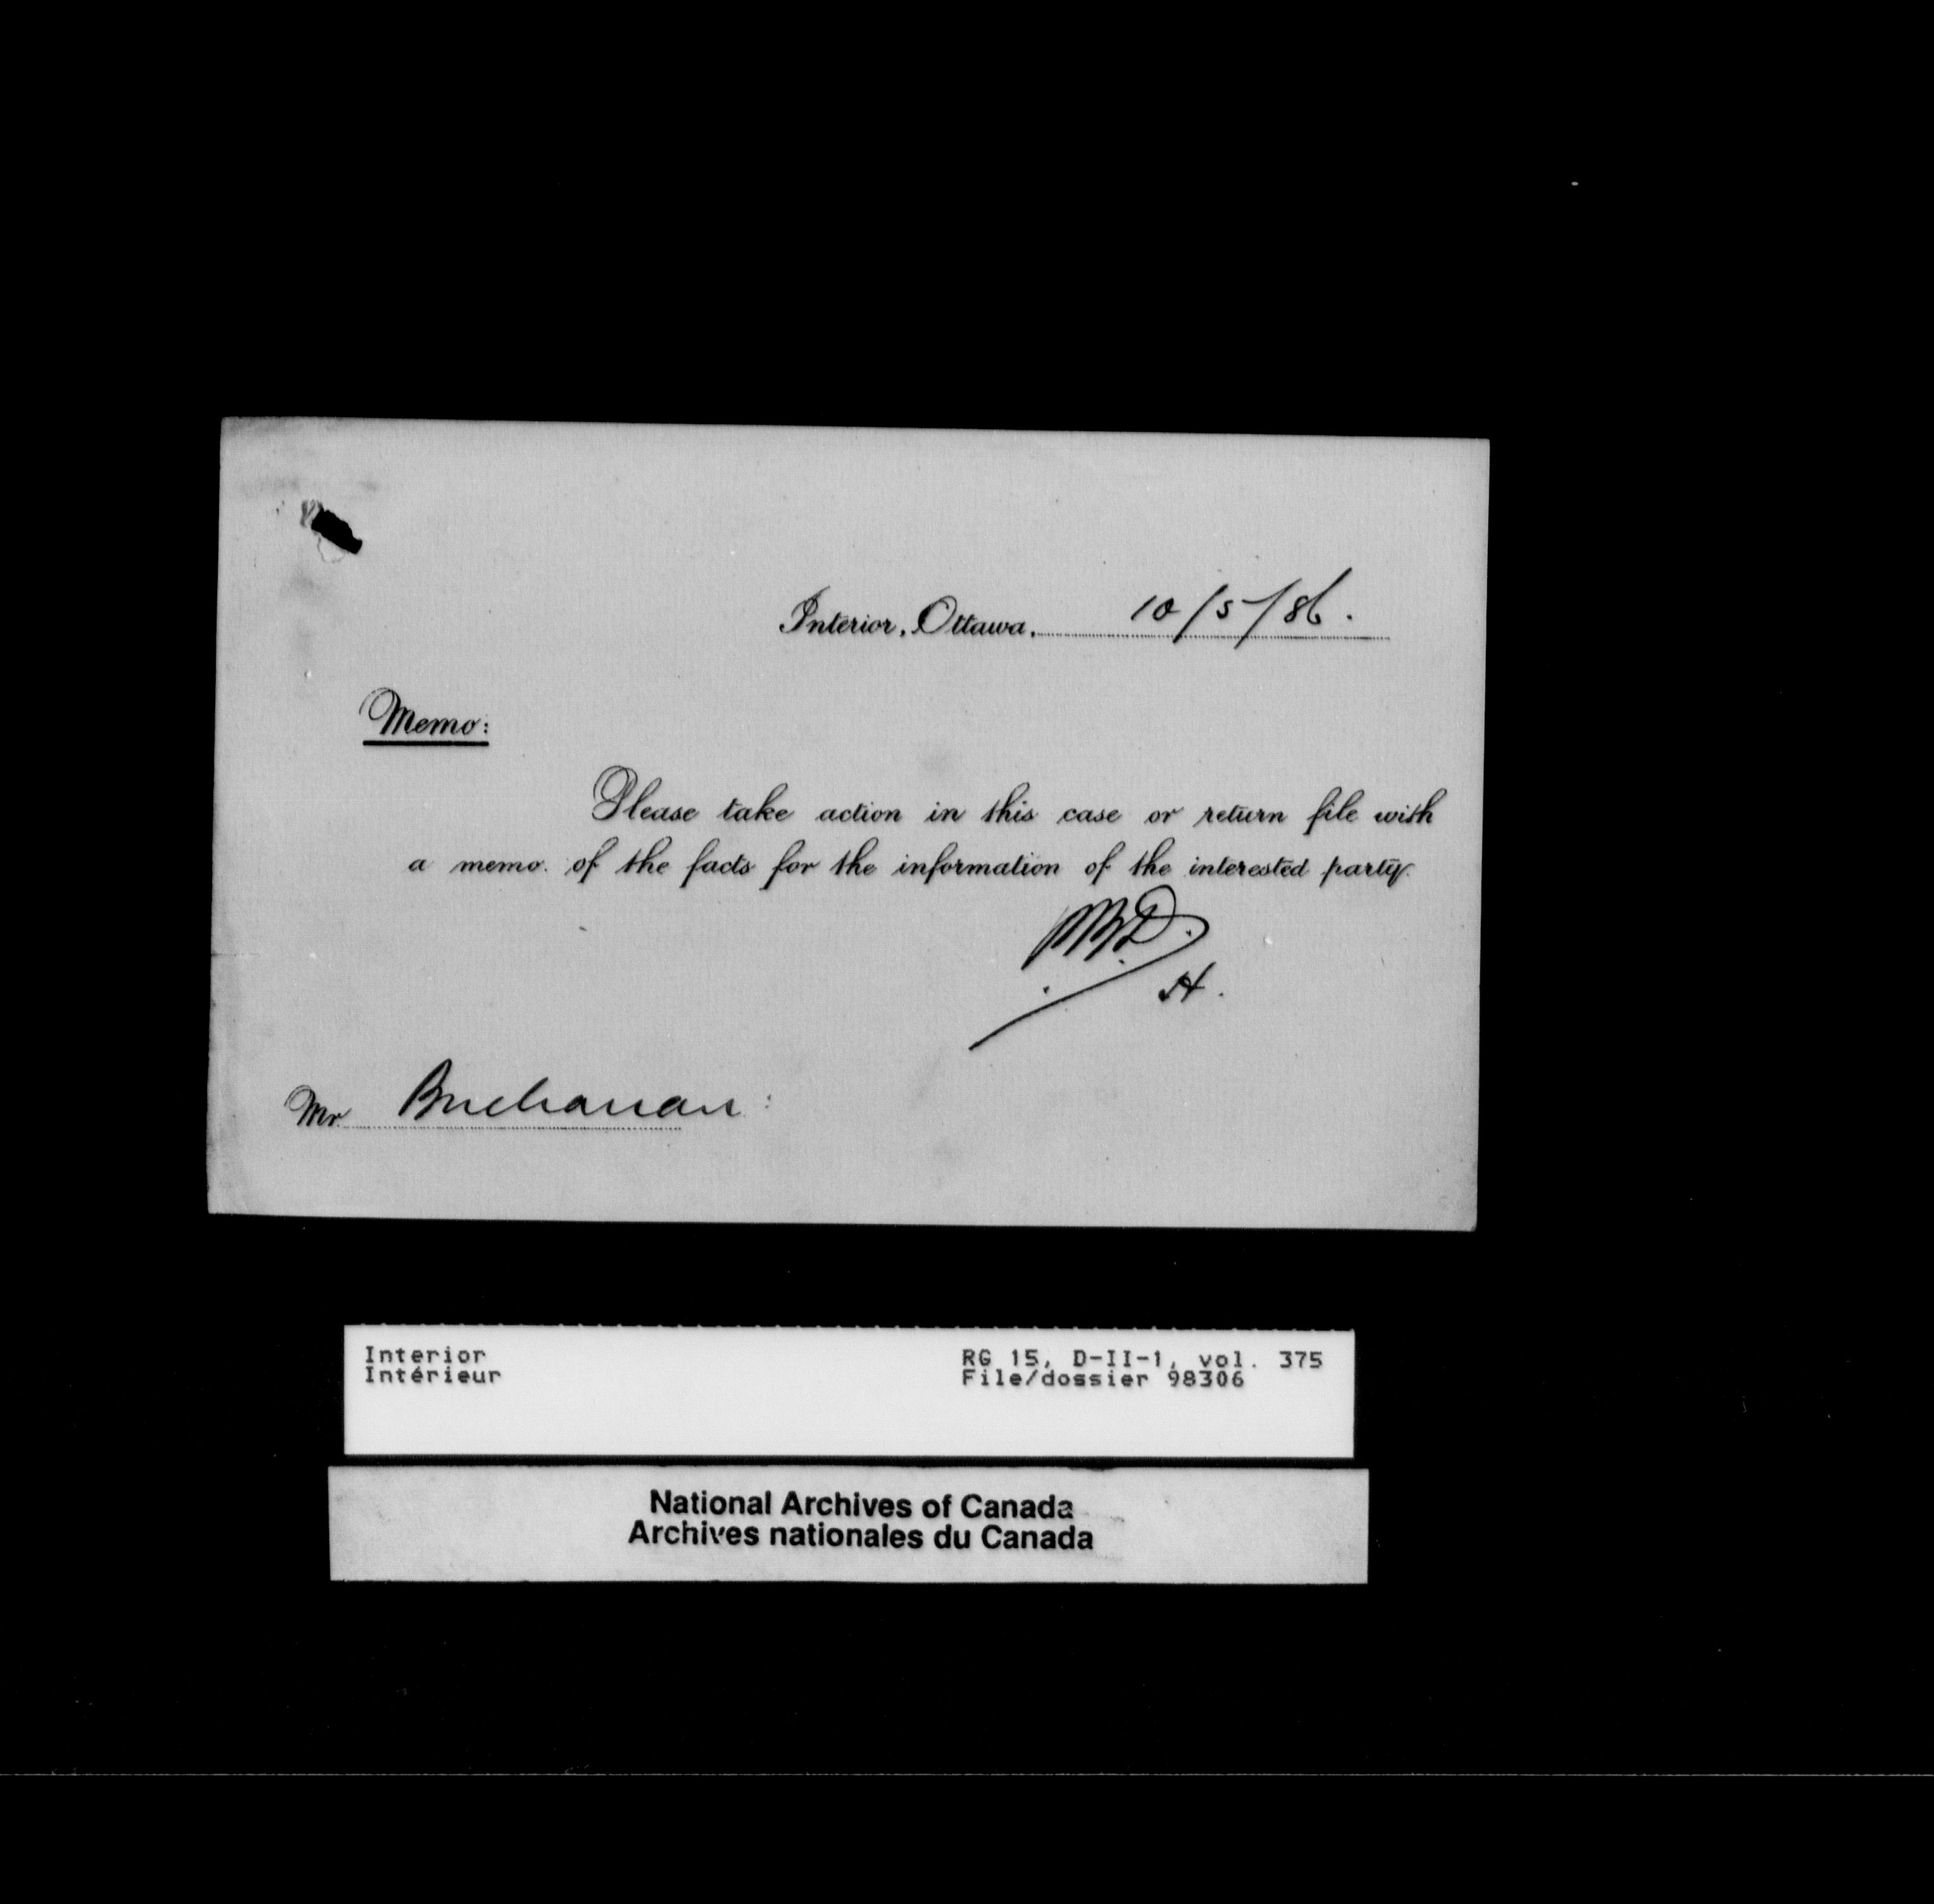 Interior, Ottawa, 10/5/86.
Memo:
Please take action in this case or return file with
a memo. of the facts for the information of the interested party.
H.
Mr. Buchanan:
Interior
Intérieur
RG 15, D-II-1, vol. 375
File/dossier 98306
National Archives of Canada
Archives nationales du Canada